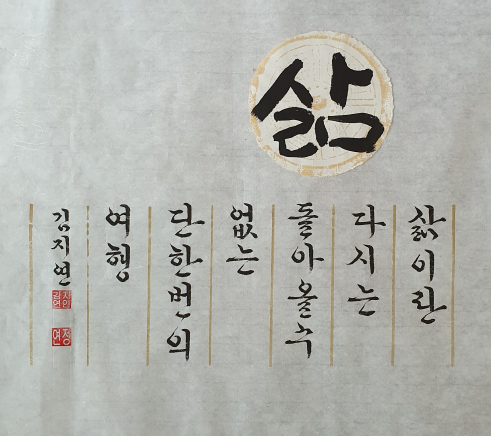 삶
삶이란
다시는
돌아올 수
없는
단 한번의
여행
김지연